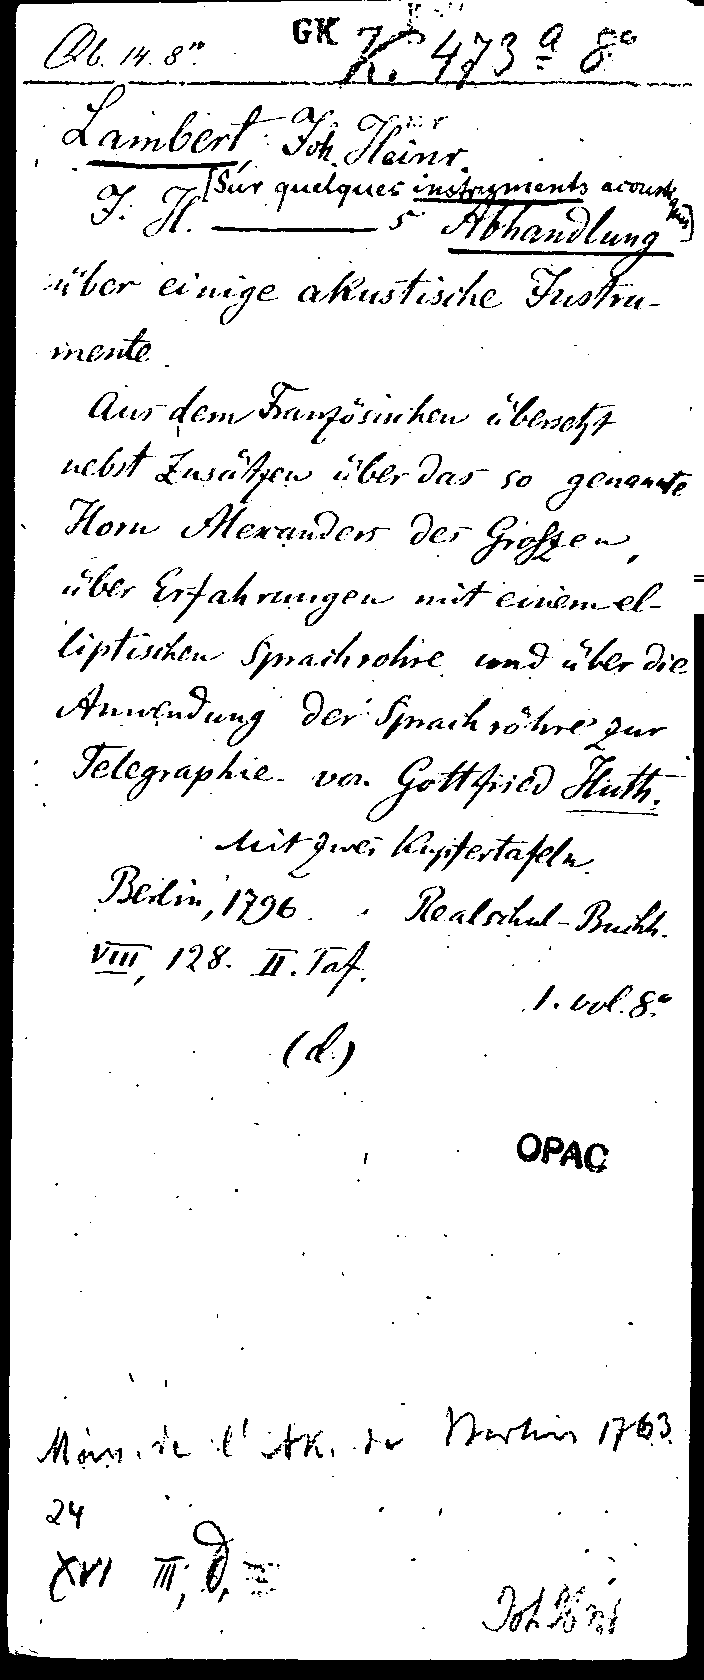 Qb. 14. 8º. GK K. 473 a 8º
Lambert, Joh. Heinr.
[Sur quelques instruments acoustiques]
J. H. ——— s Abhandlung
über einige akustische Instru-
mente.
Aus dem Französischen übersetzt
nebst Zusätzen über das so genannte
Horn Alexanders des Groszen,
über Erfahrungen mit einem el-
liptischen Sprachrohre und über die
Anwendung der Sprachröhre zur
Telegraphie von Gottfried Huth.
Mit zwei Kupfertafeln.
Berlin, 1796. Realschul-Buchh.
VIII, 128. II. Taf.
1. vol. 8º
(d.)
OPAC
Mém. de l'Ak. de Berlin 1763
24
XVI III, D,